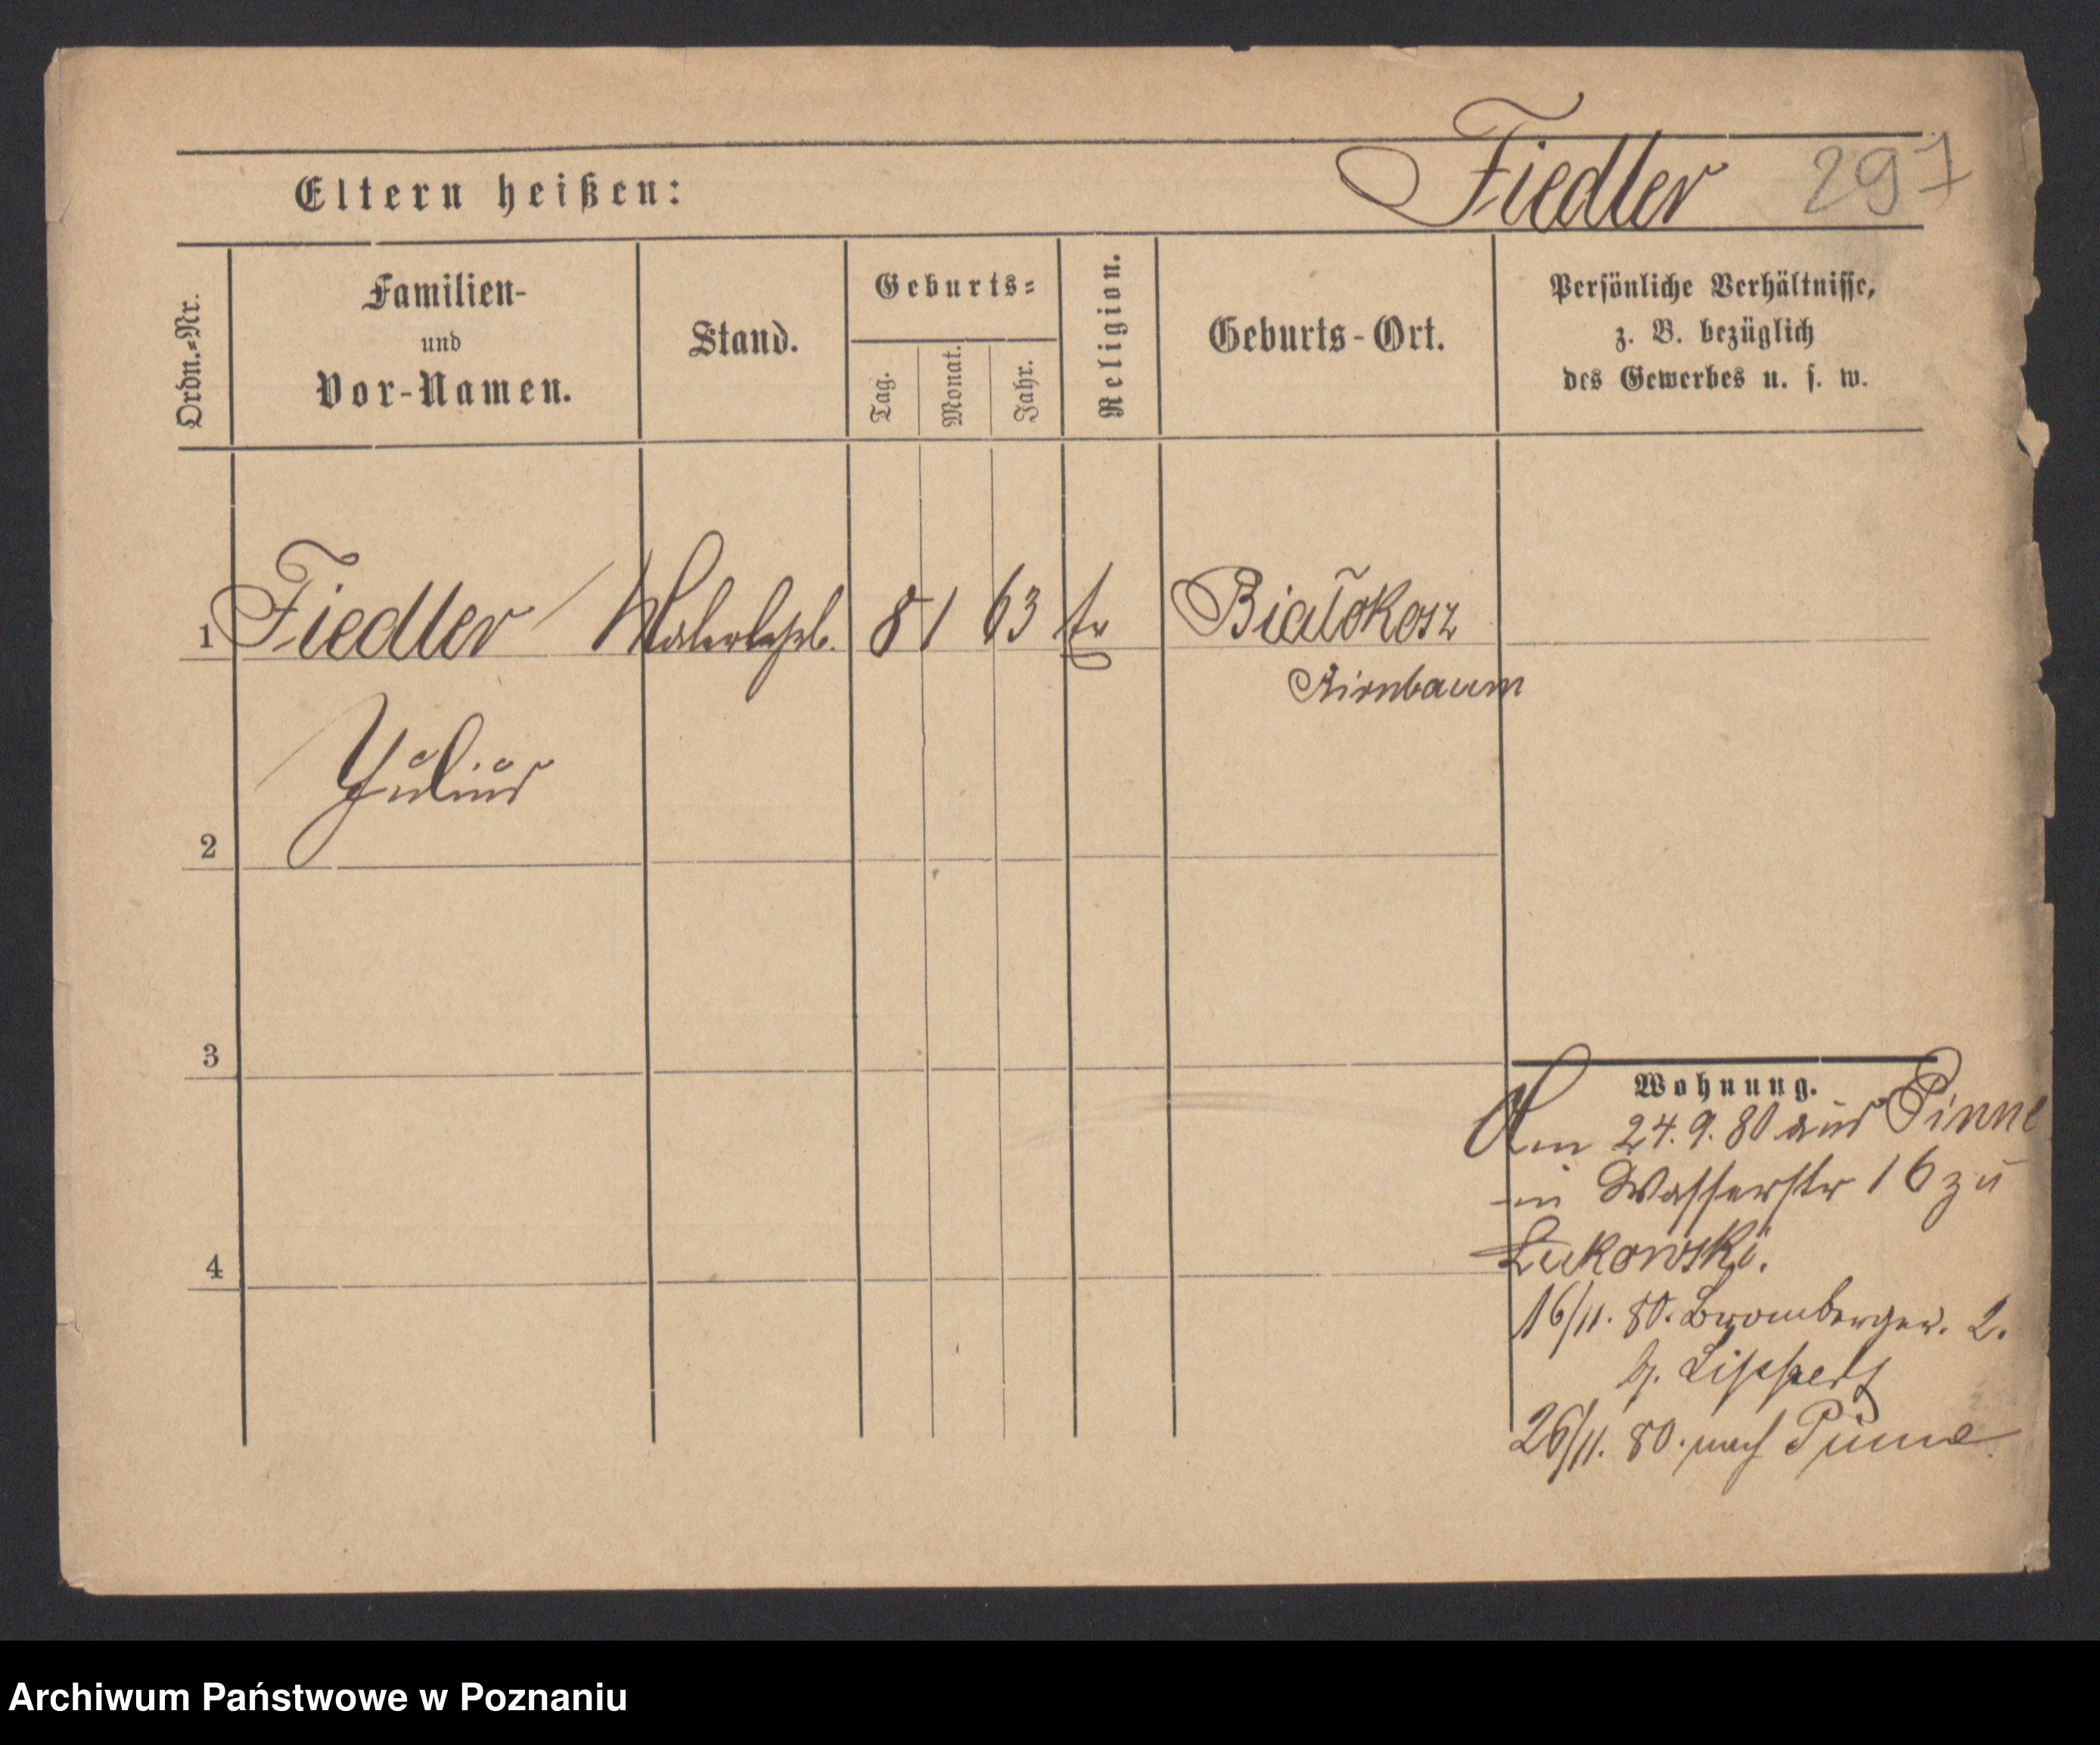 Fiedler 297
Eltern heißen:
Ordn.=Nr.
Familien-
und
Vor-Namen.
Stand.
Geburts=
Tag.
Monat.
Jahr.
Religion.
Geburts-Ort.
Persönliche Verhältnisse,
z. B. bezüglich
des Gewerbes u. s. w.
1 Fiedler 8 1 63 Białokosz
Birnbaum
Julius
2
3
4
Wohnung.
Am 24.9.80 aus Pinne
in Wasserstr 16 zu
Lukowski.
16/11. 80. Brombergerst. 2.
b. Lippert
26/11. 80. nach Pinne
Archiwum Państwowe w Poznaniu